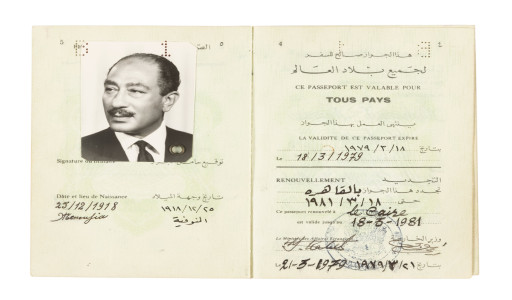 5
6
Signature du titulaire
Date et lieu de Naissance
تاريخ وجهة الميلاد
25/12/1918
١٩١٨/١٢/٢٥
Menoufia
المنوفية
6
هذا الجواز صالح للسفر
لجميع بلاد العالم
CE PASSEPORT EST VALABLE POUR
TOUS PAYS
ينتهى العمل بهذا الجواز
LA VALIDITE DE CE PASSEPORT EXPIRE
بتاريخ ١٩٧٩/٣/١٨
Le 18/3/1979
التجديد
RENOUVELLEMENT
تجدد هذا الجواز بالقاهره
حتى ١٩٨١/٣/١٨
Ce passeport renouvelé à le Caire
est valable jusqu'au 18-3-1981
وزير الخارجية
Le 21-3-1979
بتاريخ ١٩٧٩/٣/٢١